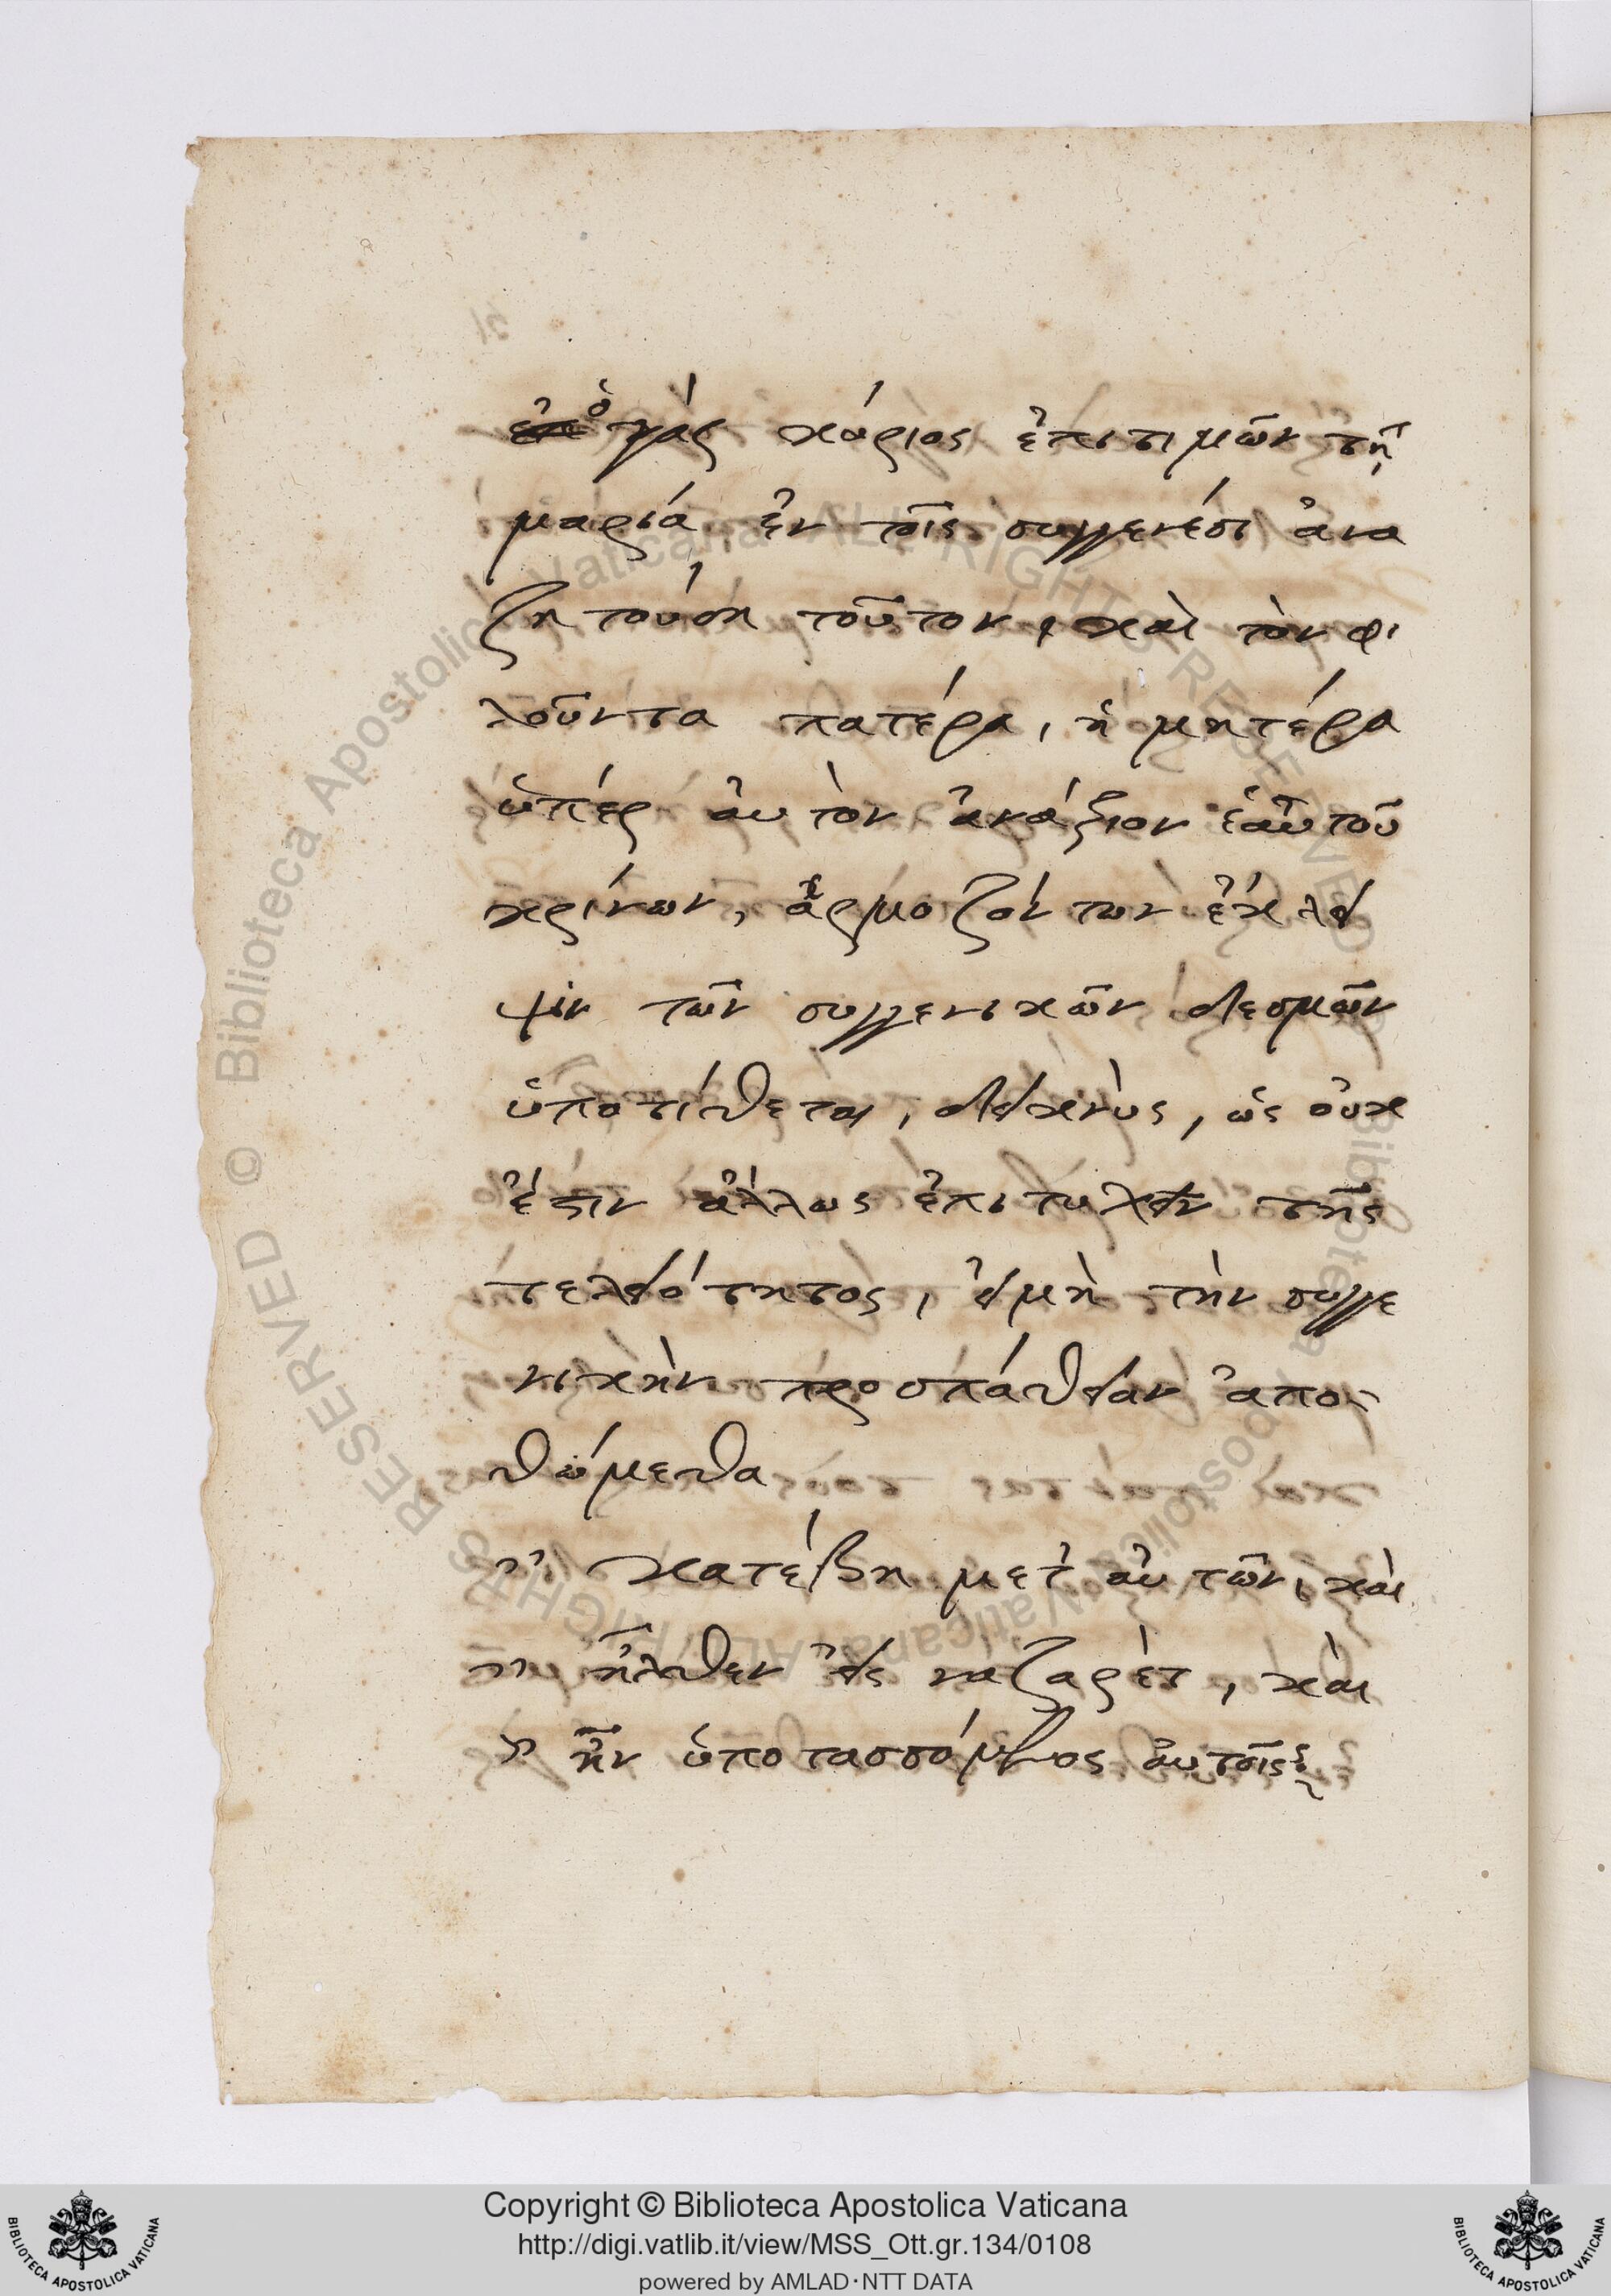 ὁ γὰρ κύριος ἐπιτιμῶν τῇ
μαρία ἐν τοῖς συγγενέσι ἀνα
ζητούση τοῦτον, καὶ τὸν φι
λοῦντα πατέρα, ἢ μητέρα
ὑπὲρ αὐτὸν ἀνάξιον ἑαυτοῦ
κρίνων, ἁρμοζόντων ἔκλει
ψιν τῶν συγγενικῶν δεσμῶν
ὑποτίθεται, δεικνὺς, ὡς οὐκ
ἔστιν ἄλλως ἐπιτυχεῖν τῆς
τελειότητος, εἰμὴ τὴν συγγε
νικὴν προσπάθειαν ἀπο-
θώμεθα
" κατέβη μετ' αὐτῶν, καὶ
" ἦλθεν εἰς ναζαρὲτ, καὶ
" ἦν ὑποτασσόμενος αὐτοῖς:
Copyright © Biblioteca Apostolica Vaticana
http://digi.vatlib.it/view/MSS_Ott.gr.134/0108
powered by AMLAD·NTT DATA
BIBLIOTECA APOSTOLICA VATICANA
BIBLIOTECA APOSTOLICA VATICANA
© Biblioteca Apostolica Vaticana ALL RIGHTS RESERVED
© Biblioteca Apostolica Vaticana ALL RIGHTS RESERVED